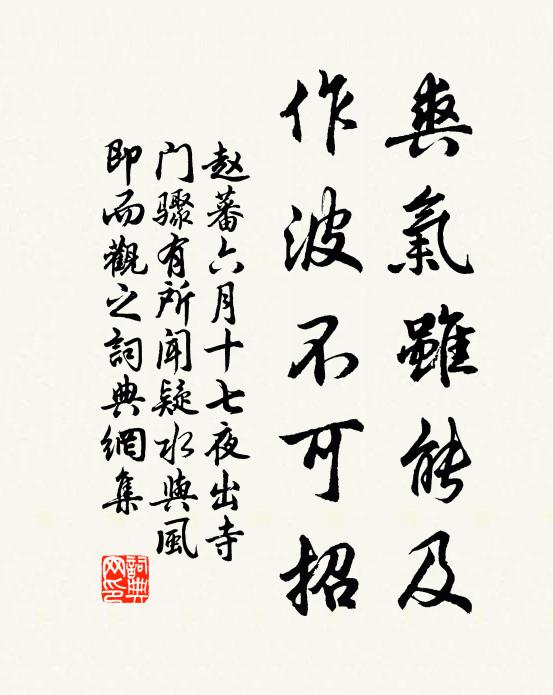 爽氣雖能及
作波不可招
赵蕃六月十七夜出寺
门骤有所闻疑水與風
即而觀之詞典網集
詞典網印